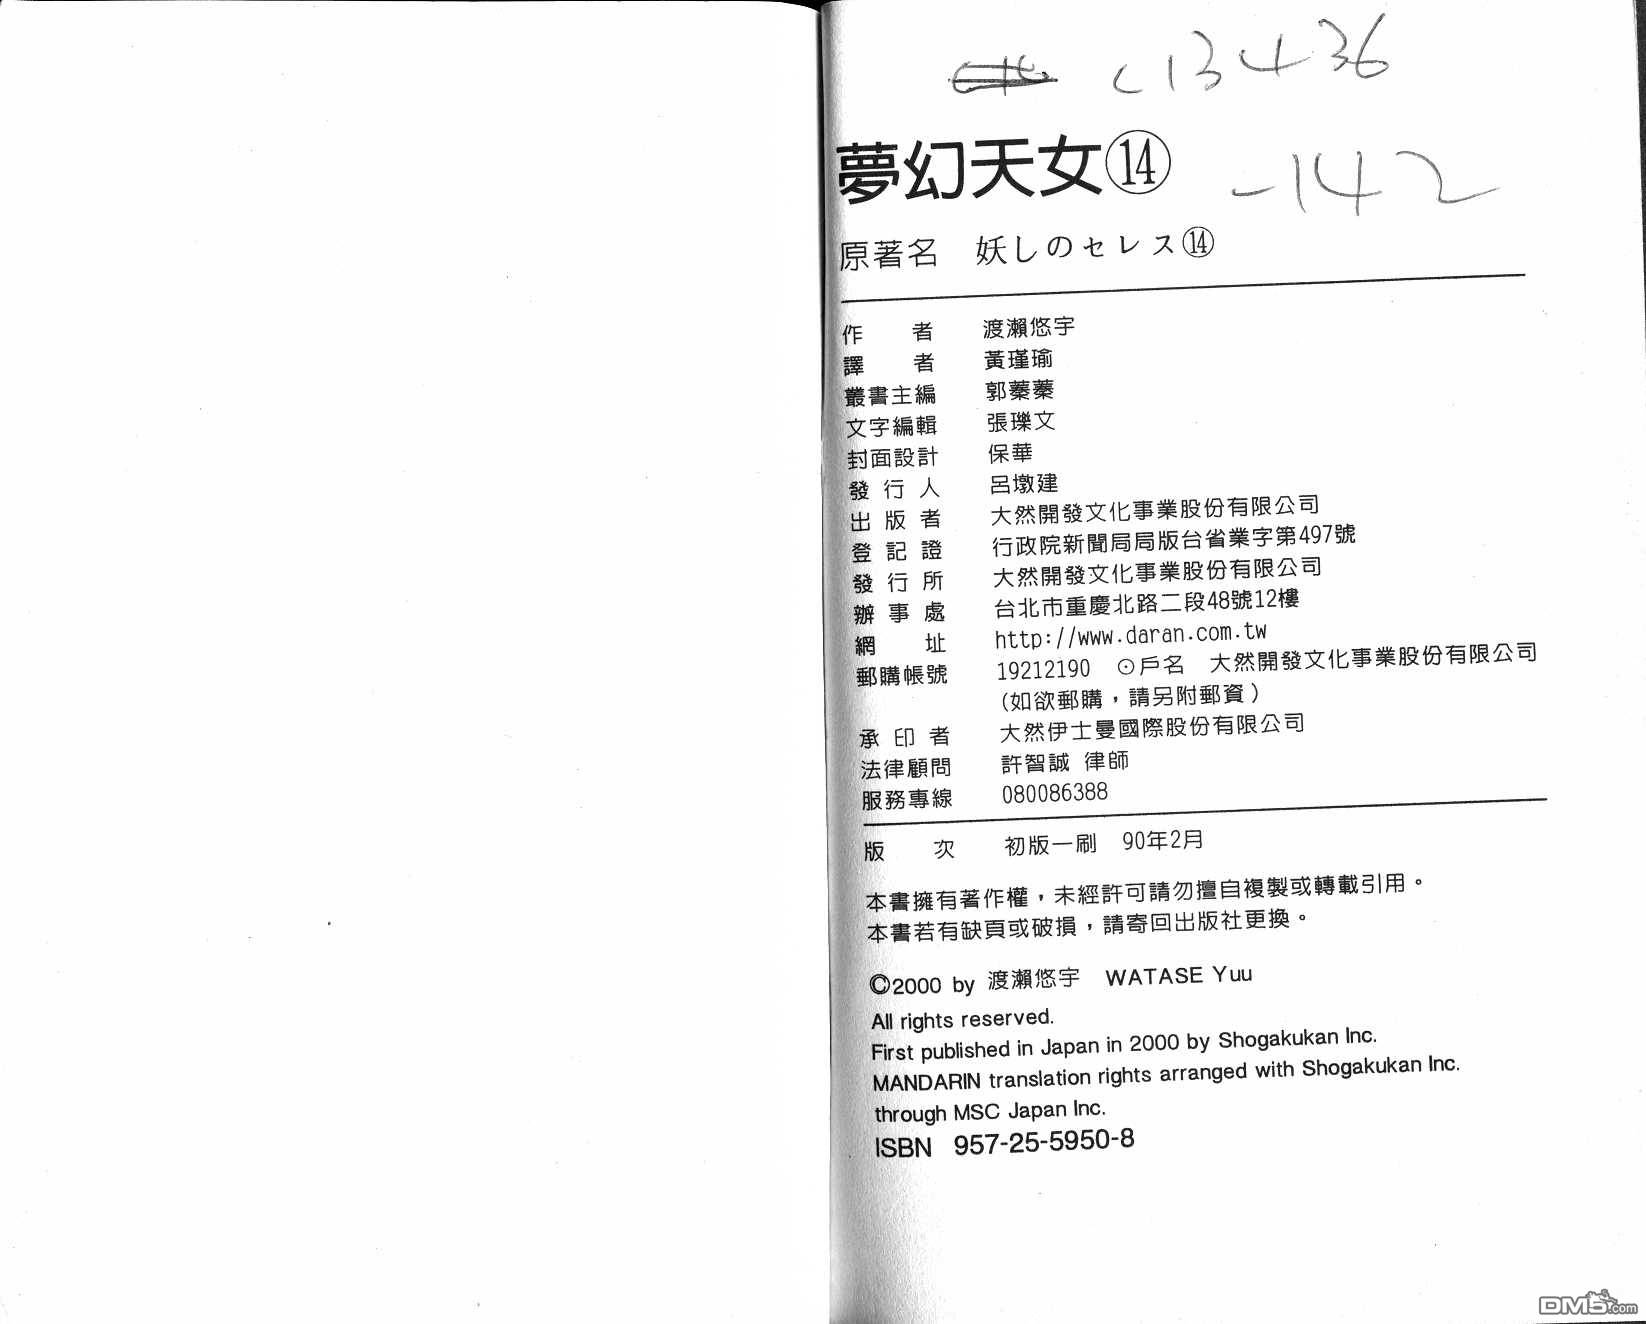 C13436
夢幻天女⑭
-142
原著名　妖しのセレス⑭
作者　渡瀨悠宇
譯者　黃瑾瑜
叢書主編　郭蓁蓁
文字編輯　張瓅文
封面設計　保華
發行人　呂墩建
出版者　大然開發文化事業股份有限公司
登記證　行政院新聞局局版台省業字第497號
發行所　大然開發文化事業股份有限公司
辦事處　台北市重慶北路二段48號12樓
網址　http://www.daran.com.tw
郵購帳號　19212190　⊙戶名　大然開發文化事業股份有限公司
(如欲郵購，請另附郵資)
承印者　大然伊士曼國際股份有限公司
法律顧問　許智誠 律師
服務專線　080086388
版次　初版一刷　90年2月
本書擁有著作權，未經許可請勿擅自複製或轉載引用。
本書若有缺頁或破損，請寄回出版社更換。
©2000 by 渡瀨悠宇　WATASE Yuu
All rights reserved.
First published in Japan in 2000 by Shogakukan Inc.
MANDARIN translation rights arranged with Shogakukan Inc.
through MSC Japan Inc.
ISBN 957-25-5950-8
DM5.com